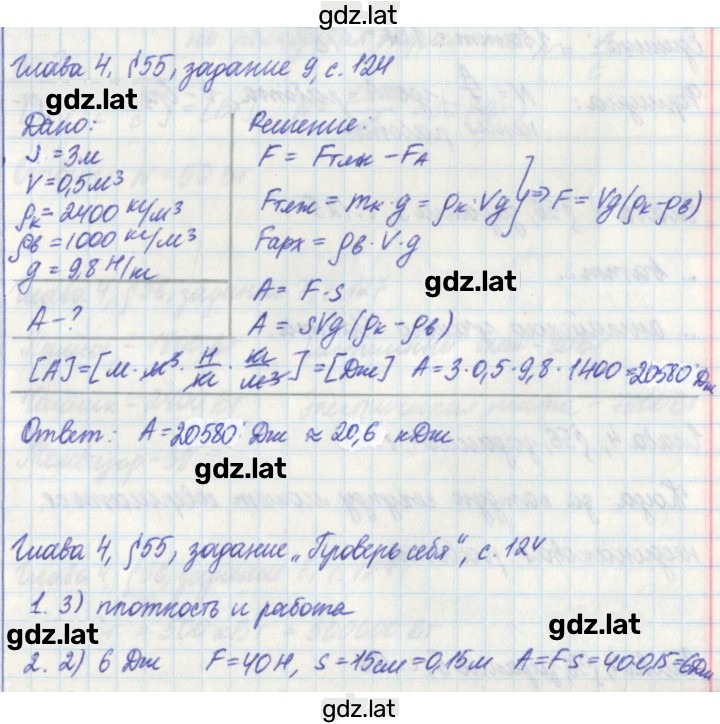 gdz.lat
Глава 4, §55, задание 9, с. 124
gdz.lat
Дано:
S = 3м
V = 0,5м³
ρк = 2400 кг/м³
ρв = 1000 кг/м³
g = 9,8 Н/кг
A - ?
Решение:
F = Fтяж - FА
Fтяж = mк · g = ρк · Vg } => F = Vg(ρк-ρв)
Fарх = ρв · V · g
gdz.lat
A = F · s
A = sVg(ρк-ρв)
[A] = [м · м³ · Н/кг · кг/м³] = [Дж] A = 3 · 0,5 · 9,8 · 1400 = 20580 Дж
Ответ: A = 20580 Дж ≈ 20,6 кДж
gdz.lat
Глава 4, §55, задание „Проверь себя", с. 124
1. 3) плотность и работа
gdz.lat
gdz.lat
2. 2) 6 Дж F = 40 Н, s = 15см = 0,15м A = F·s = 40·0,15 = 6Дж
gdz.lat